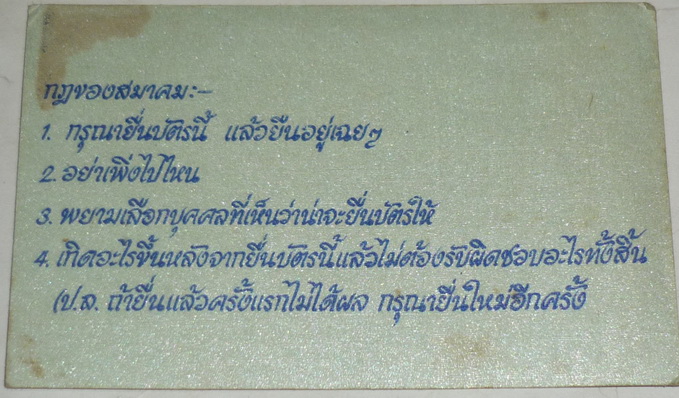 กฎของสมาคม:-
1. กรุณายื่นบัตรนี้ แล้วยืนอยู่เฉยๆ
2. อย่าเพิ่งไปไหน
3. พยามเลือกบุคคลที่เห็นว่าน่าจะยื่นบัตรให้
4. เกิดอะไรขึ้นหลังจากยื่นบัตรนี้แล้วไม่ต้องรับผิดชอบอะไรทั้งสิ้น
(ป.ล. ถ้ายื่นแล้วครั้งแรกไม่ได้ผล กรุณายื่นใหม่อีกครั้ง